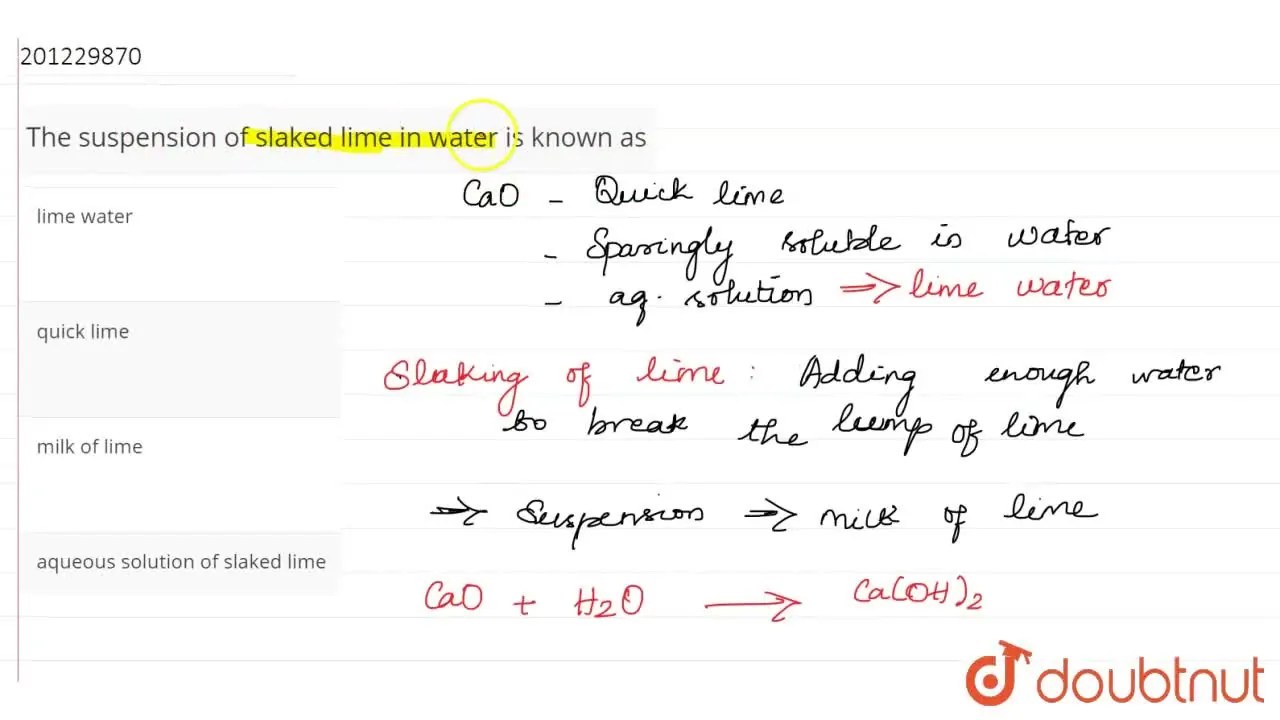 201229870
The suspension of slaked lime in water is known as
CaO - Quick lime
lime water
- Sparingly soluble in water
- aq. solution ⇒ lime water
quick lime
Slaking of lime : Adding enough water
to break the lump of lime
milk of lime
⇒ Suspension ⇒ milk of lime
aqueous solution of slaked lime
CaO + H2O → Ca(OH)2
doubtnut